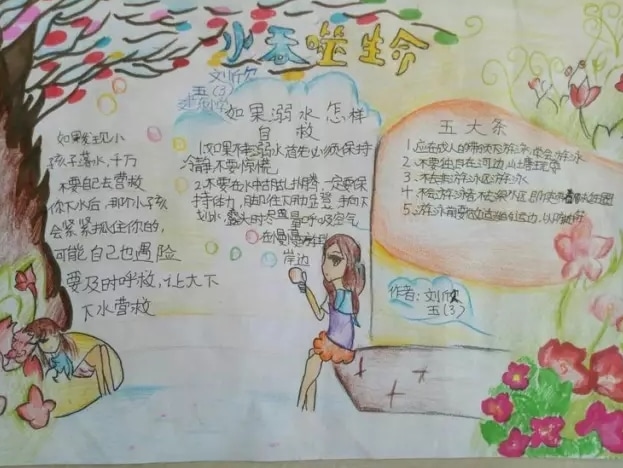 水吞噬生命
刘忻
五(3)
如果溺水怎样
自救
如果发现小
孩子落水,千万
不要自己去营救
你下水后,那个小孩
会紧紧抓住你的,
可能自己也遇险
要及时呼救,让大下
下水营救
1.如果不甚溺水首先必须保持
冷静不要惊慌
2.不要在水中胡乱扑腾,一定要保
持体力,
露头时尽量呼吸空气
岸边
五大条
1.应在成人的带领下游泳学会游泳
2.不要独自在河边、山塘玩耍
3.不去非游泳区游泳
4.不会游泳者,不去深水区
5.游泳前要做适当的运动,以防抽筋
作者:刘忻
五(3)